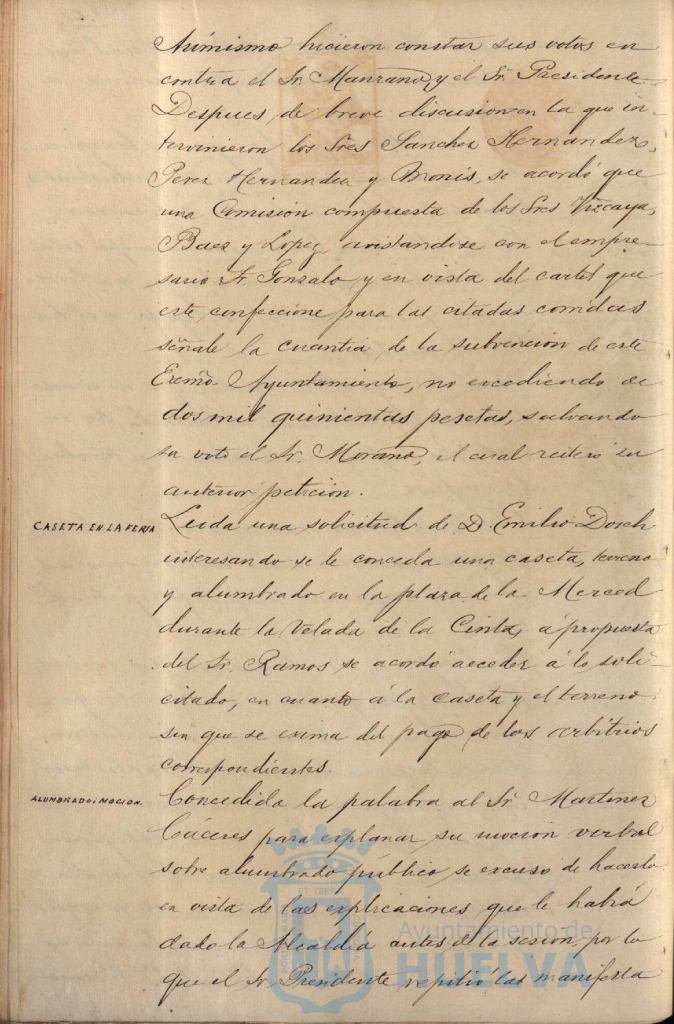 Asimismo hicieron constar sus votos en
contra el Sr. Manzano y el Sr. Presidente.
Despues de breve discusion en la que in-
tervinieron los Sres Sanchez Hernandez,
Perez Hernandez y Monis, se acordó que
una Comision compuesta de los Sres Vizcaya,
Baez y Lopez avistandose con el empre-
sario Sr. Gonzalo y en vista del cartel que
este confeccione para las citadas corridas
señale la cuantia de la subvencion de este
Excmo Ayuntamiento, no excediendo de
dos mil quinientas pesetas, salvando
su voto el Sr. Morano, el cual reiteró su
anterior peticion.
CASETA EN LA FERIA
Leida una solicitud de D. Emilio Dosch
interesando se le conceda una caseta, terreno
y alumbrado en la plaza de la Merced
durante la Velada de la Cinta, á propuesta
del Sr. Ramos se acordó acceder á lo soli-
citado, en cuanto á la caseta y el terreno
sin que se exima del pago de los arbitrios
correspondientes.
ALUMBRADO: MOCION.
Concedida la palabra al Sr. Martinez
Cáceres para explanar su mocion verbal
sobre alumbrado público, se excuso de hacerlo
en vista de las explicaciones que le habrá
dado la Alcaldia antes de la sesion, por lo
que el Sr. Presidente repitió las manifesta
Ayuntamiento de
HUELVA